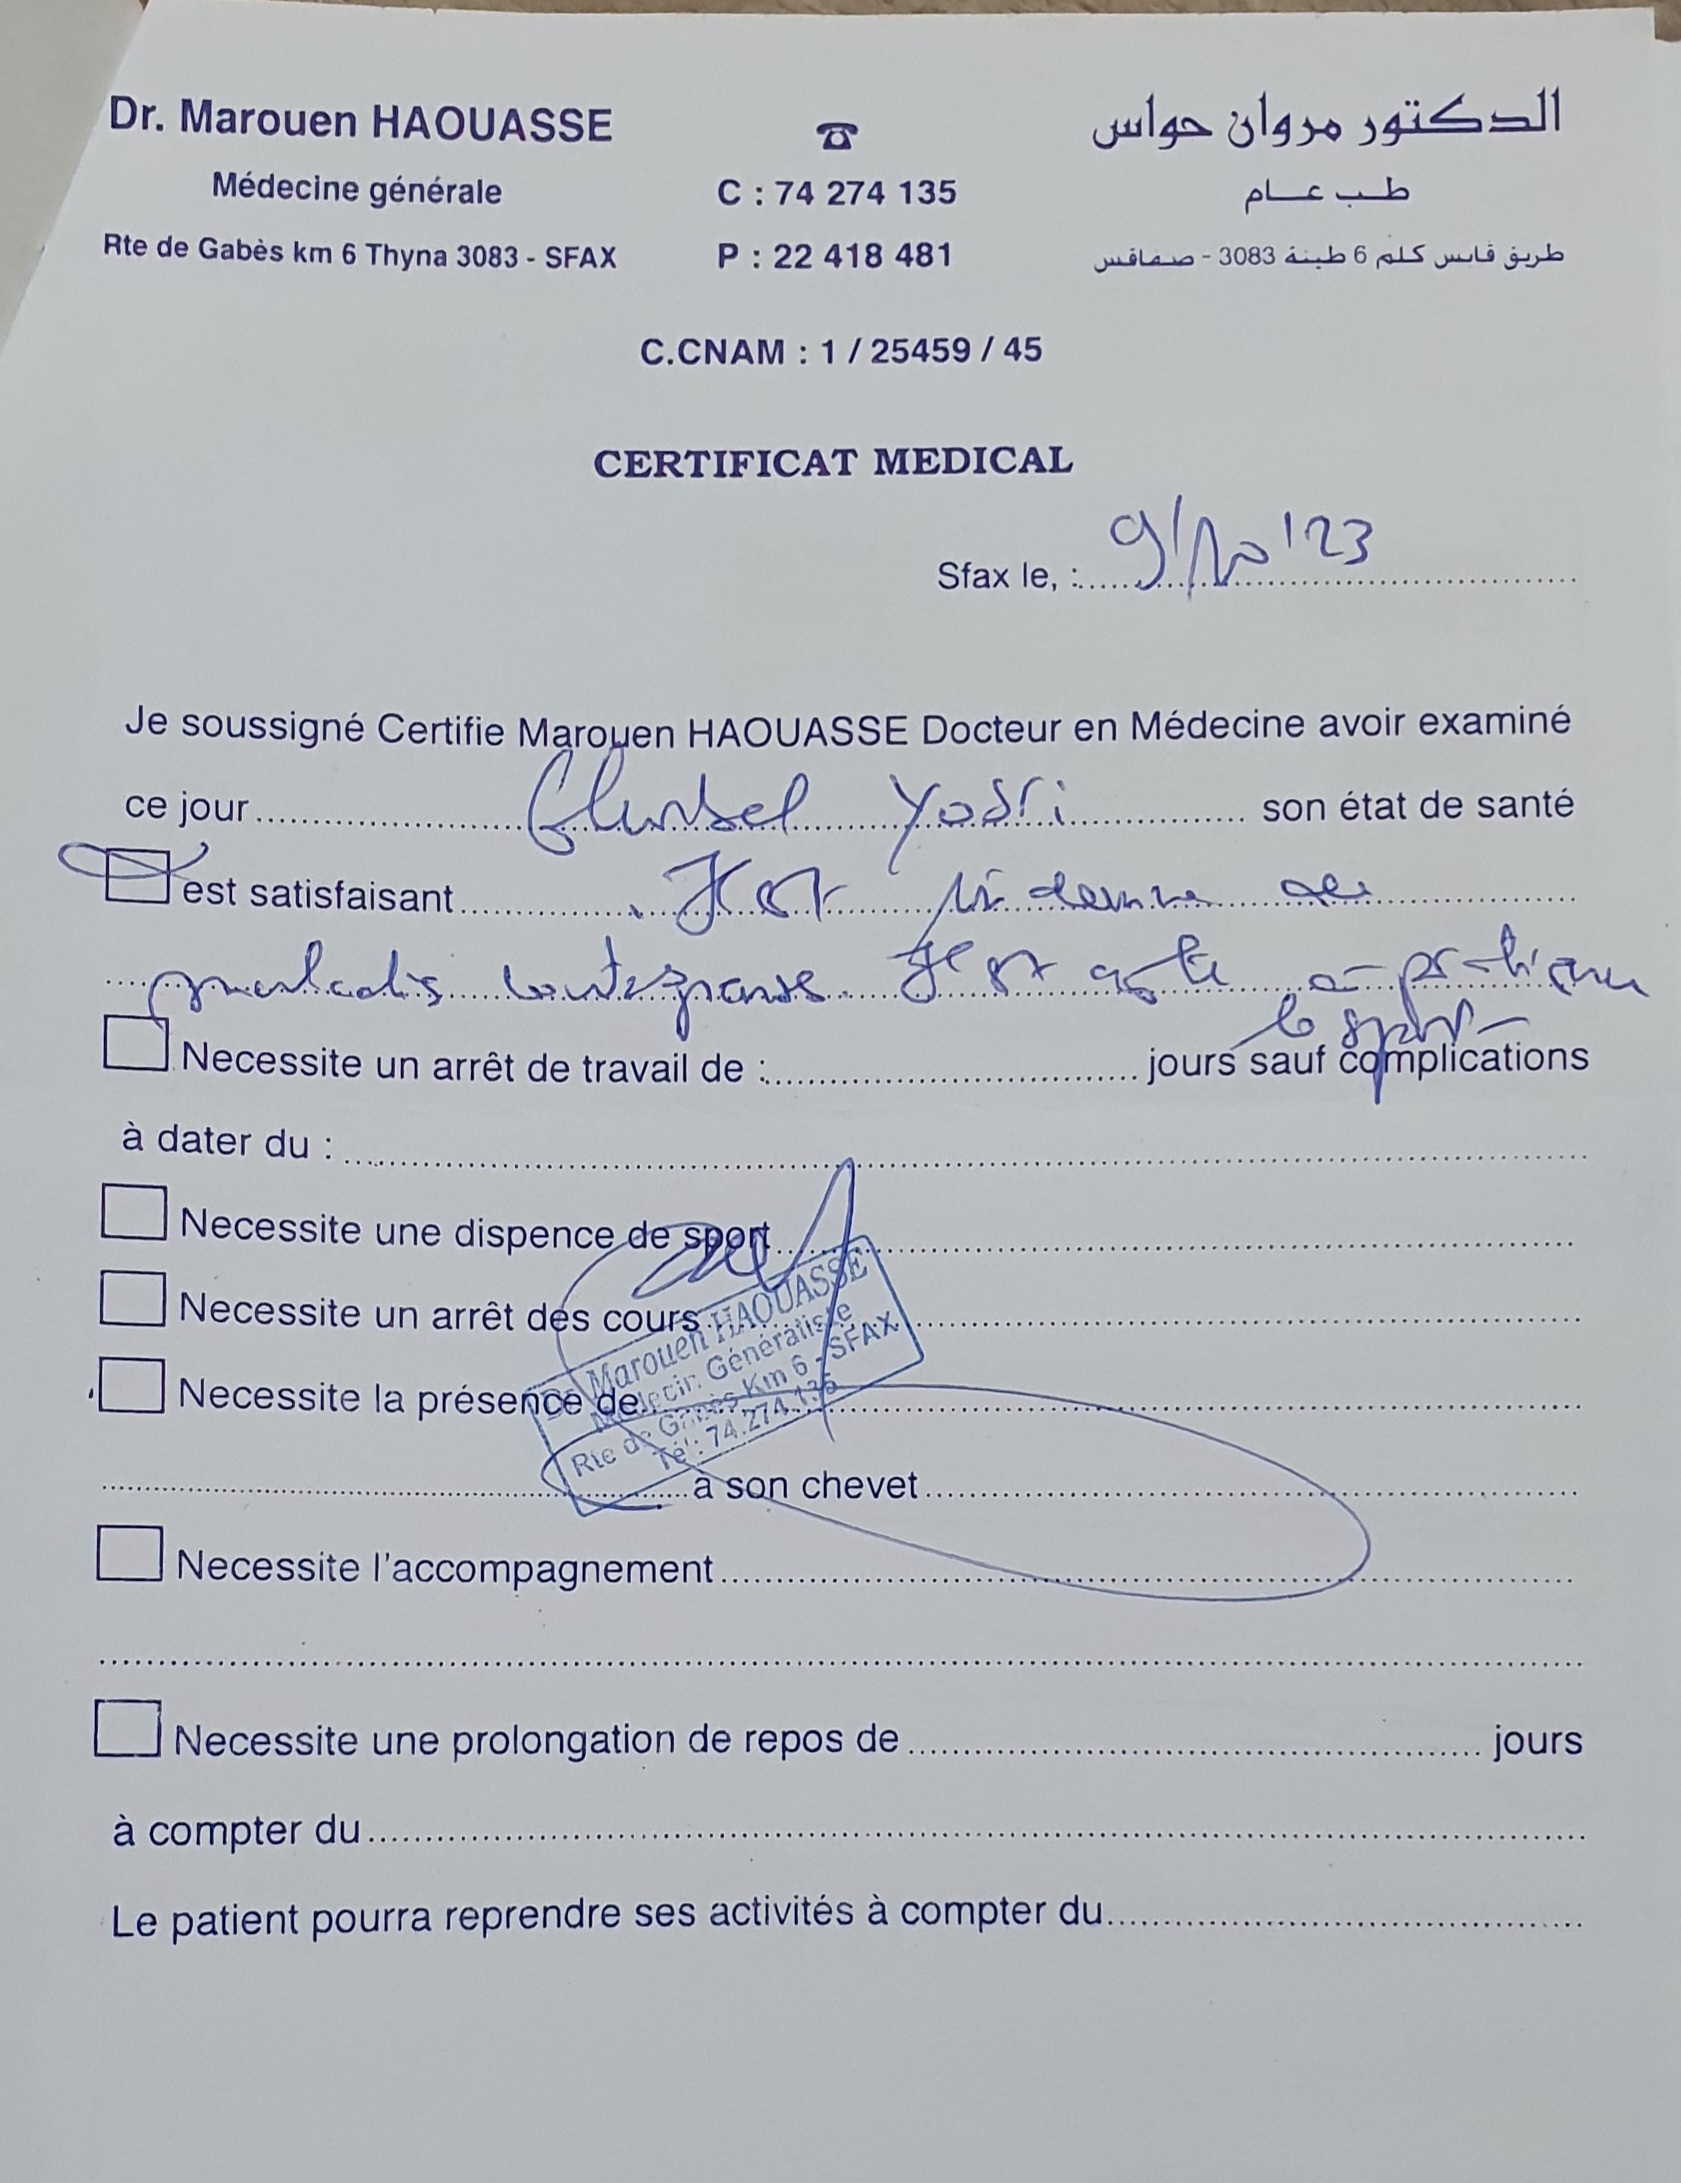 Dr. Marouen HAOUASSE
Médecine générale
Rte de Gabès km 6 Thyna 3083 - SFAX
☎
C : 74 274 135
P : 22 418 481
الدكتور مروان حواس
طب عام
طريق قابس كلم 6 طينة 3083 - صفاقس
C.CNAM : 1 / 25459 / 45
CERTIFICAT MEDICAL
Sfax le, : 9/10/23
Je soussigné Certifie Marouen HAOUASSE Docteur en Médecine avoir examiné
ce jour Yosri son état de santé
est satisfaisant. Il est indemne de
maladies contagieuse Il est apte à pratiquer
le sport
Necessite un arrêt de travail de : jours sauf complications
à dater du :
Necessite une dispence de sport
Necessite un arrêt des cours
Necessite la présence de
à son chevet
Marouen HAOUASSE
Médecin Généraliste
Rte de Gabès Km 6 - SFAX
Tél : 74.274.135
Necessite l'accompagnement
Necessite une prolongation de repos de jours
à compter du
Le patient pourra reprendre ses activités à compter du